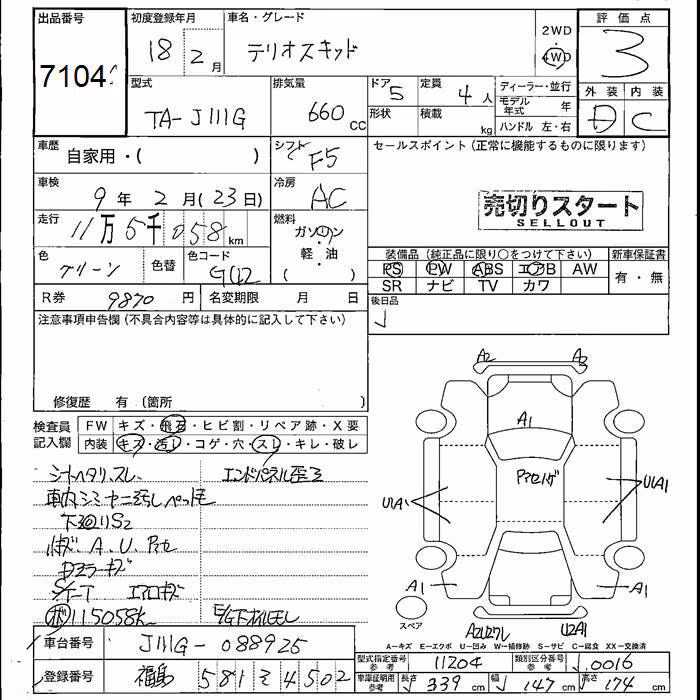 出品番号 初度登録年月 車名・グレード 2WD 評価点
7104 18年 2月 テリオスキッド 4WD 3
型式 排気量 ドア 5 定員 4人 ディーラー・並行 外装 内装
TA-J111G 660cc 形状 積載 kg モデル年式 年 D C
ハンドル 左・右
車歴 自家用・( ) シフト F5 セールスポイント(正常に機能するものに限ります)
車検 9年 2月(23日) 冷房 AC 売切りスタート
SELLOUT
走行 11万5千058km 燃料 ガソリン
軽・油
( )
色 グリーン 色替 色コード G42 装備品(純正品に限り○をつけて下さい) 新車保証書
PS PW ABS エアB AW 有・無
SR ナビ TV カワ
R券 9870円 名変期限 月 日 後日品
注意事項申告欄(不具合内容等は具体的に記入して下さい)
修復歴 有(箇所
A2 A2
A1
検査員 FW キズ・飛石・ヒビ割・リペア跡・X要
記入欄 内装 キズ・汚レ・コゲ・穴・スレ・キレ・破レ
シートヘタリ、スレ エンドパネル歪ミ
U1A1 U1A1
車内シミ ヤニ汚シ ペット毛
下廻リS2
A、U、
ドアミラーキズ
エアロキズ
115058k E/G下オイルモレ
A1 A1
スペア
U2A1
車台番号 J111G-088925
A-キズ E-エクボ U-凹み W-補修跡 S-サビ C-腐食 XX-交換済
登録番号 福島 581 4502
型式指定番号 参考 11204 類別区分番号 参考 0016
車庫証明用 参考 長さ 339cm 幅 147cm 高さ 174cm